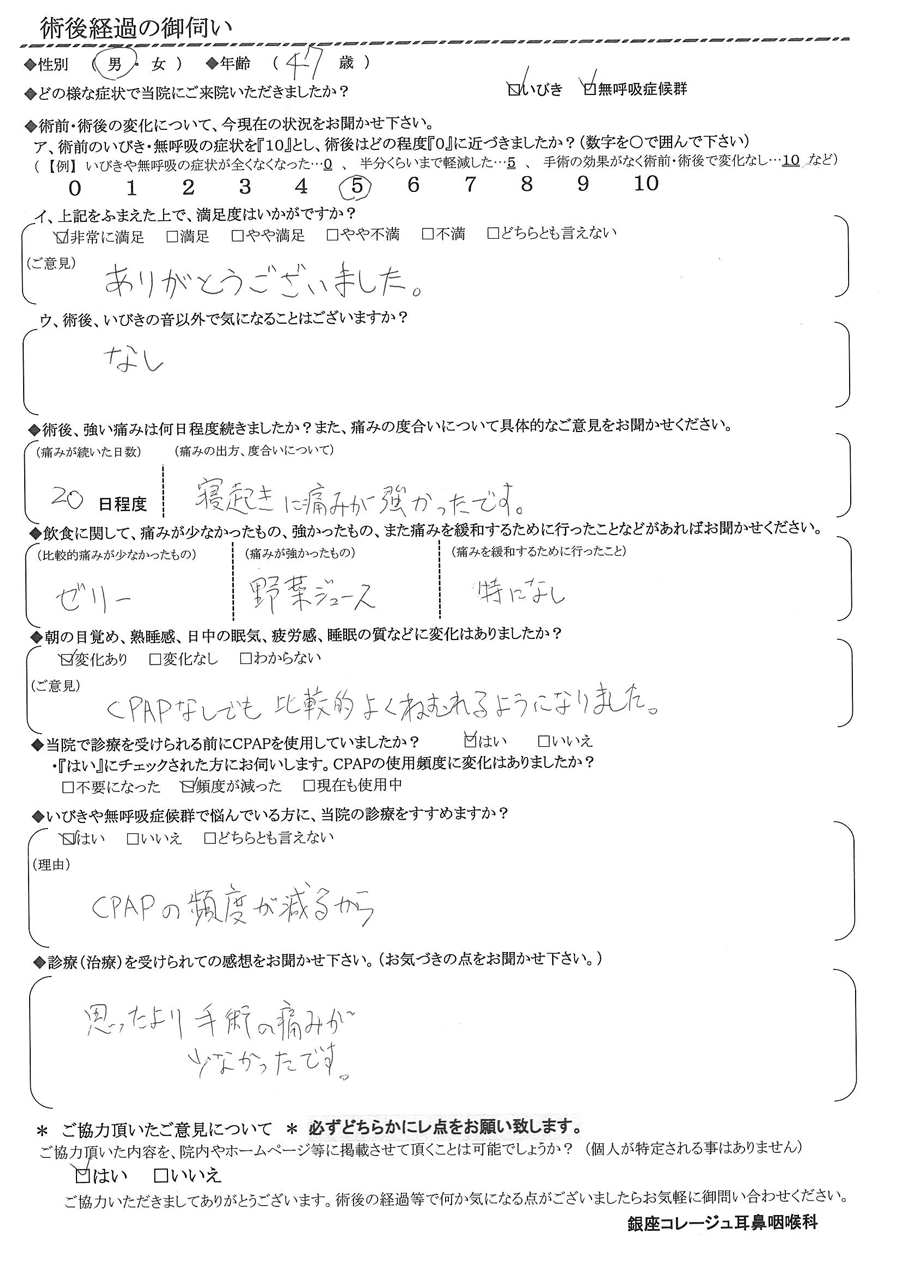 術後経過の御伺い
◆性別 （ 男 ・ 女 ） ◆年齢 （ 47 歳 ）
◆どの様な症状で当院にご来院いただきましたか？ ☑いびき ☑無呼吸症候群
◆術前・術後の変化について、今現在の状況をお聞かせ下さい。
ア、術前のいびき・無呼吸の症状を『10』とし、術後はどの程度『0』に近づきましたか？（数字を〇で囲んで下さい）
（ 【例】 いびきや無呼吸の症状が全くなくなった…0 、 半分くらいまで軽減した…5 、 手術の効果がなく術前・術後で変化なし…10 など）
0 1 2 3 4 5 6 7 8 9 10
イ、上記をふまえた上で、満足度はいかがですか？
☑非常に満足 □満足 □やや満足 □やや不満 □不満 □どちらとも言えない
（ご意見）
ありがとうございました。
ウ、術後、いびきの音以外で気になることはございますか？
なし
◆術後、強い痛みは何日程度続きましたか？また、痛みの度合いについて具体的なご意見をお聞かせください。
（痛みが続いた日数） （痛みの出方、度合いについて）
20 日程度 寝起きに痛みが強かったです。
◆飲食に関して、痛みが少なかったもの、強かったもの、また痛みを緩和するために行ったことなどがあればお聞かせください。
（比較的痛みが少なかったもの） （痛みが強かったもの） （痛みを緩和するために行ったこと）
ゼリー 野菜ジュース 特になし
◆朝の目覚め、熟睡感、日中の眠気、疲労感、睡眠の質などに変化はありましたか？
☑変化あり □変化なし □わからない
（ご意見）
CPAPなしでも比較的よくねむれるようになりました。
◆当院で診療を受けられる前にCPAPを使用していましたか？ ☑はい □いいえ
・『はい』にチェックされた方にお伺いします。CPAPの使用頻度に変化はありましたか？
□不要になった ☑頻度が減った □現在も使用中
◆いびきや無呼吸症候群で悩んでいる方に、当院の診療をすすめますか？
☑はい □いいえ □どちらとも言えない
（理由）
CPAPの頻度が減るから
◆診療（治療）を受けられての感想をお聞かせ下さい。（お気づきの点をお聞かせ下さい。）
思ったより手術の痛みが
少なかったです。
＊ ご協力頂いたご意見について ＊ 必ずどちらかにレ点をお願い致します。
ご協力頂いた内容を、院内やホームページ等に掲載させて頂くことは可能でしょうか？ （個人が特定される事はありません）
☑はい □いいえ
ご協力いただきましてありがとうございます。術後の経過等で何か気になる点がございましたらお気軽に御問い合わせください。
銀座コレージュ耳鼻咽喉科